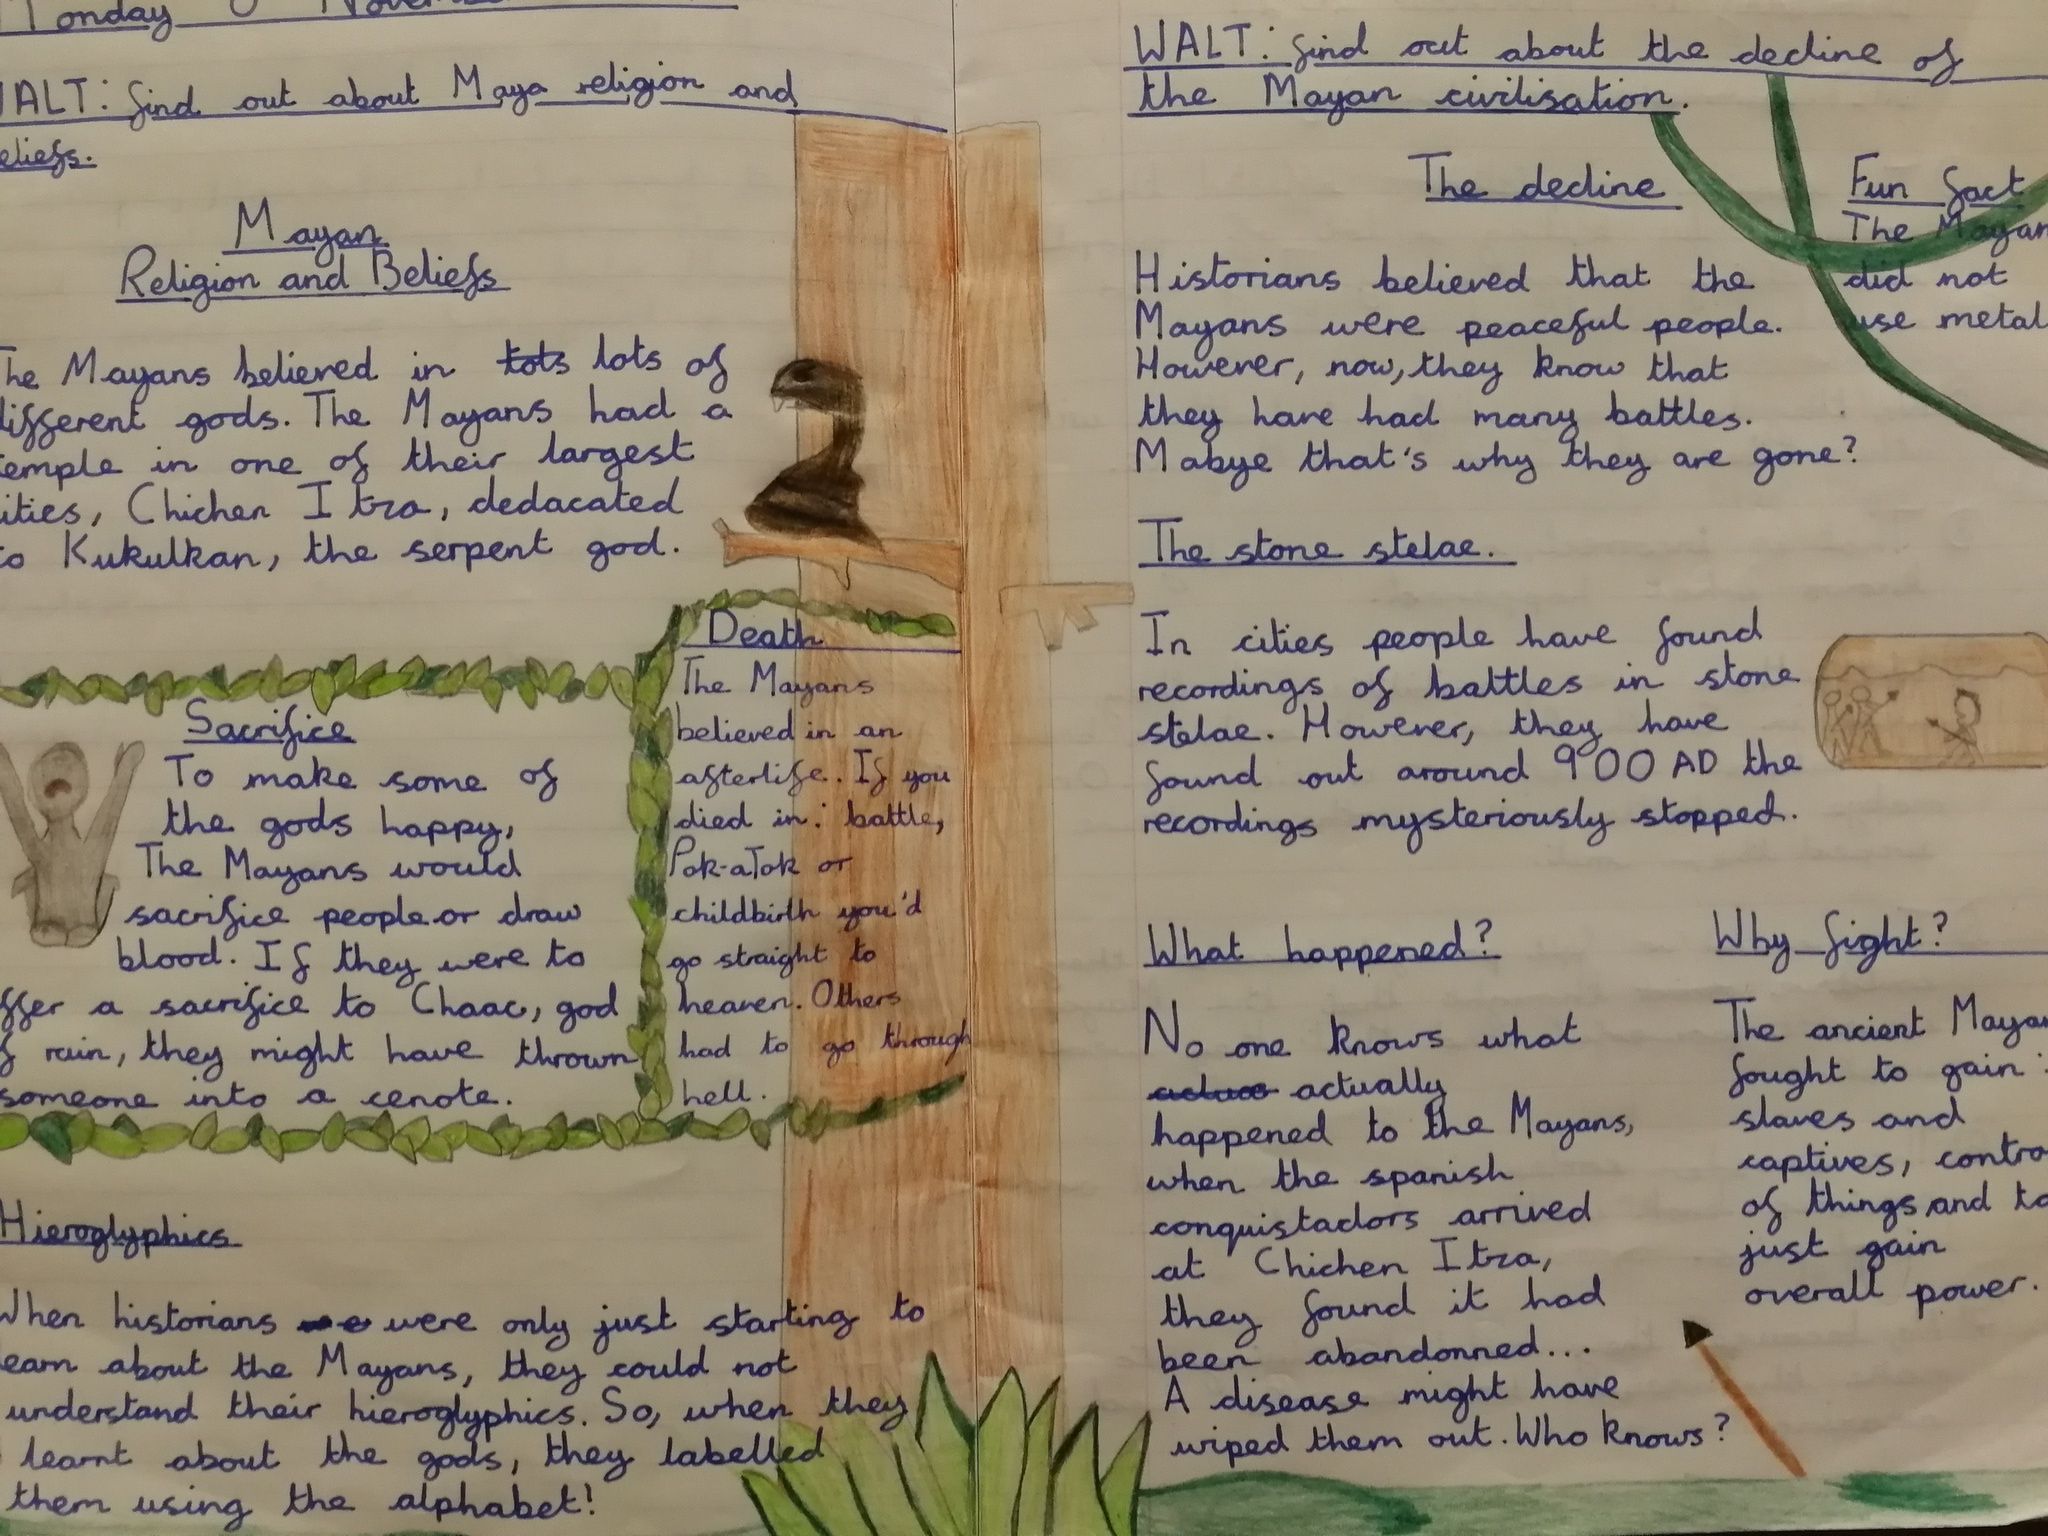 Monday November
WALT: find out about Maya religion and
eliefs.
Mayan
Religion and Beliefs
The Mayans believed in tots lots of
different gods. The Mayans had a
temple in one of their largest
ities, Chichen Itza, dedacated
to Kukulkan, the serpent god.
Sacrifice
To make some of
the gods happy,
The Mayans would
sacrifice people or draw
blood. If they were to
ffer a sacrifice to Chaac, god
f rain, they might have thrown
someone into a cenote.
Death
The Mayans
believed in an
afterlife. If you
died in: battle,
Pok-aTok or
childbirth you'd
go straight to
heaven. Others
had to go through
hell.
Hieroglyphics
When historians were only just starting to
earn about the Mayans, they could not
understand their hieroglyphics. So, when they
learnt about the gods, they labelled
them using the alphabet!
WALT: find out about the decline of
the Mayan civilisation.
The decline
Historians believed that the
Mayans were peaceful people.
However, now, they know that
they have had many battles.
Mabye that's why they are gone?
Fun fact
The Mayan
did not
use metal
The stone stelae.
In cities people have found
recordings of battles in stone
stelae. However, they have
found out around 900 AD the
recordings mysteriously stopped.
What happened?
No one knows what
actually
happened to the Mayans,
when the spanish
conquistadors arrived
at Chichen Itza,
they found it had
been abandonned...
A disease might have
wiped them out. Who knows?
Why fight?
The ancient Mayan
fought to gain:
slaves and
captives, contro
of things and to
just gain
overall power.